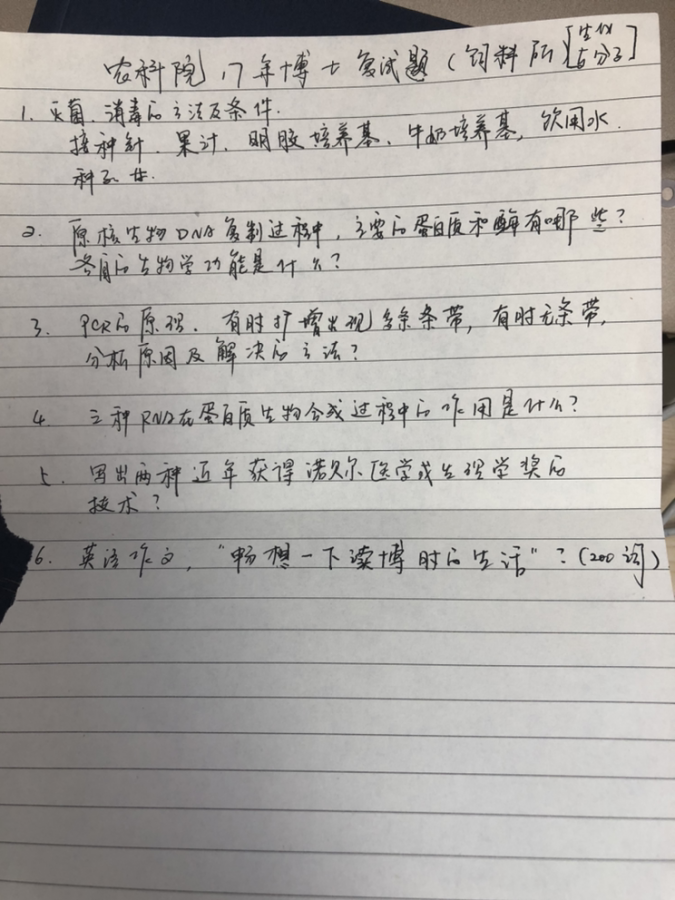 农科院17年博士复试题(饲料所[生化与分子]
1. 灭菌、消毒的方法及条件.
接种针、果汁、明胶培养基、牛奶培养基, 饮用水.
2. 原核生物DNA复制过程中, 主要的蛋白质和酶有哪些?
各自的生物学功能是什么?
3. PCR的原理. 有时扩增出现多条条带, 有时无条带,
分析原因及解决的方法?
4. 三种RNA在蛋白质生物合成过程中的作用是什么?
5. 写出两种近年获得诺贝尔医学或生理学奖的
技术?
6. 英语作文, "畅想一下读博时的生活"?(200词)